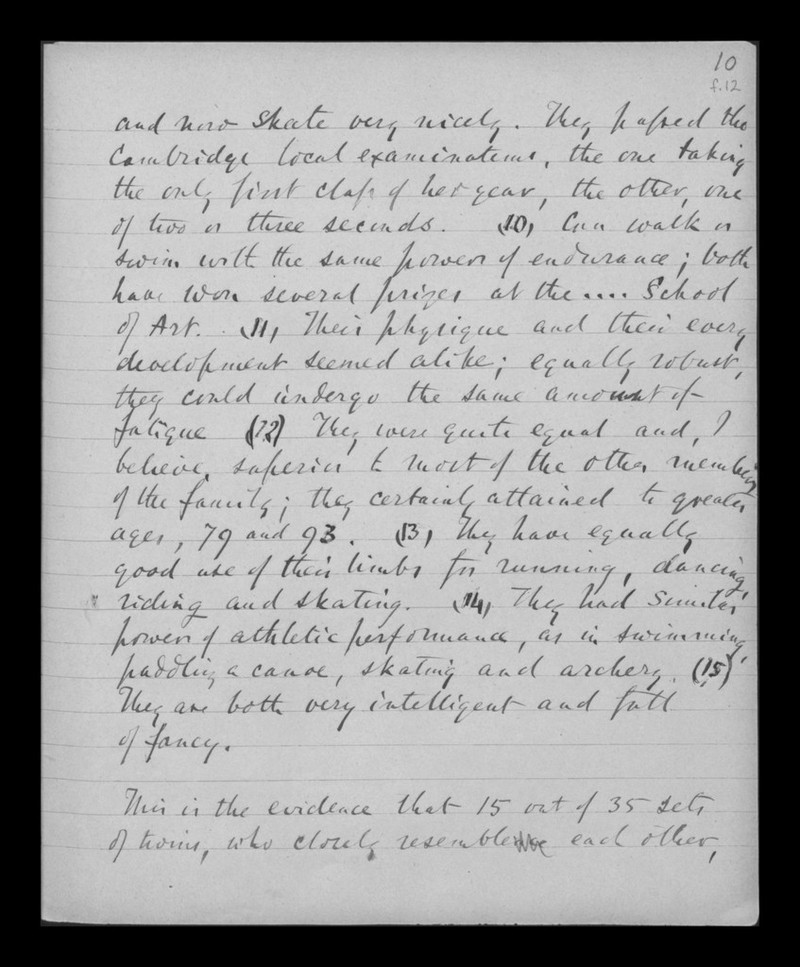 10
f.12
and now skate very nicely. They passed the
Cambridge local examinations, the one taking
the only first class of her year, the other, one
of two or three seconds. (10) Can walk or
swim with the same powers of endurance; both
have won several prizes at the .... School
of Art. (11) Their physique and their every
development seemed alike; equally robust,
they could undergo the same amount of
fatigue (12) They were quite equal and, I
believe, superior to most of the other members
of the family; they certainly attained to greater
ages, 79 and 93. (13) They have equally
good use of their limbs for running, dancing,
riding and skating. (14) They had similar
powers of athletic performance, as in swimming,
paddling a canoe, skating and archery. (15)
They are both very intelligent and full
of fancy.
This is the evidence that 15 out of 35 sets
of twins, who closely resemble each other,